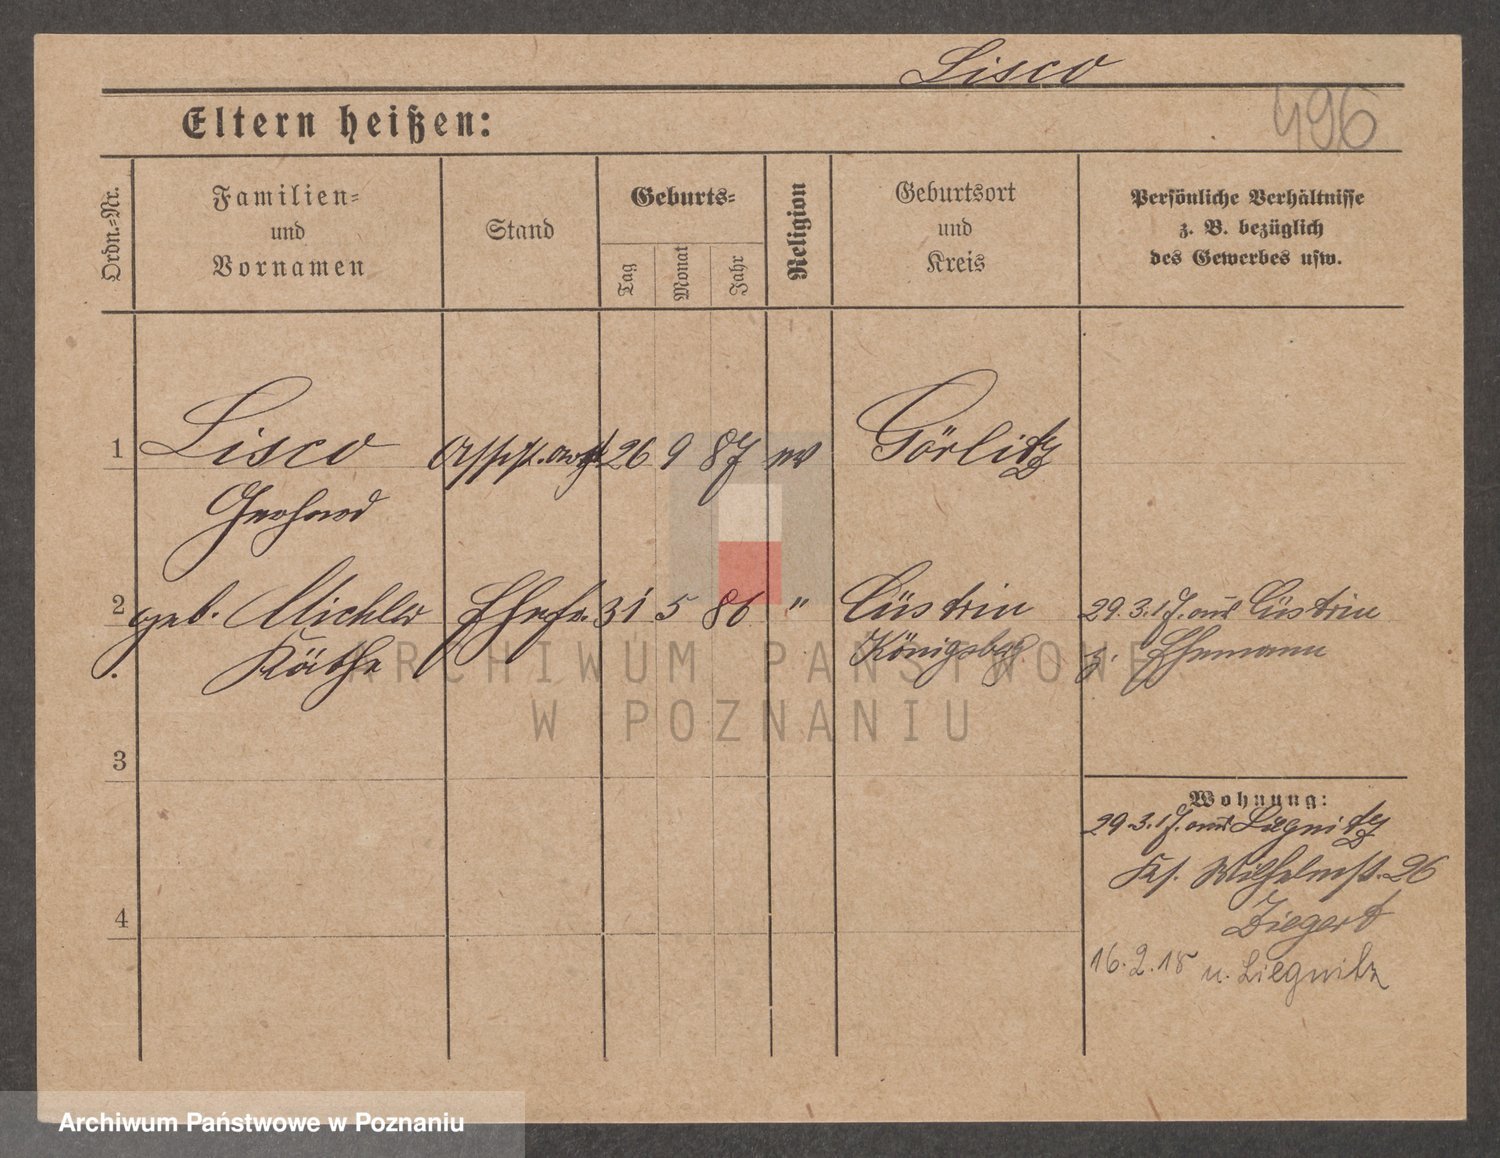 Lisco
Eltern heißen:
496
Ordn.-Nr.
Familien-
und
Vornamen
Stand
Geburts-
Tag
Monat
Jahr
Religion
Geburtsort
und
Kreis
Persönliche Verhältnisse
z. B. bezüglich
des Gewerbes usw.
1 Lisco Assist.arzt 26 9 87 ev Görlitz
Gerhard
2 geb. Michler Ehefr. 31 5 86 " Cüstrin 29.3.17. aus Cüstrin
Käthe Königsberg z. Ehemann
3
Wohnung:
29.3.17. aus Liegnitz
Ks. Wilhelmst. 26
4
Ziegert
16.2.18 n. Liegnitz
ARCHIWUM PAŃSTWOWE
W POZNANIU
Archiwum Państwowe w Poznaniu